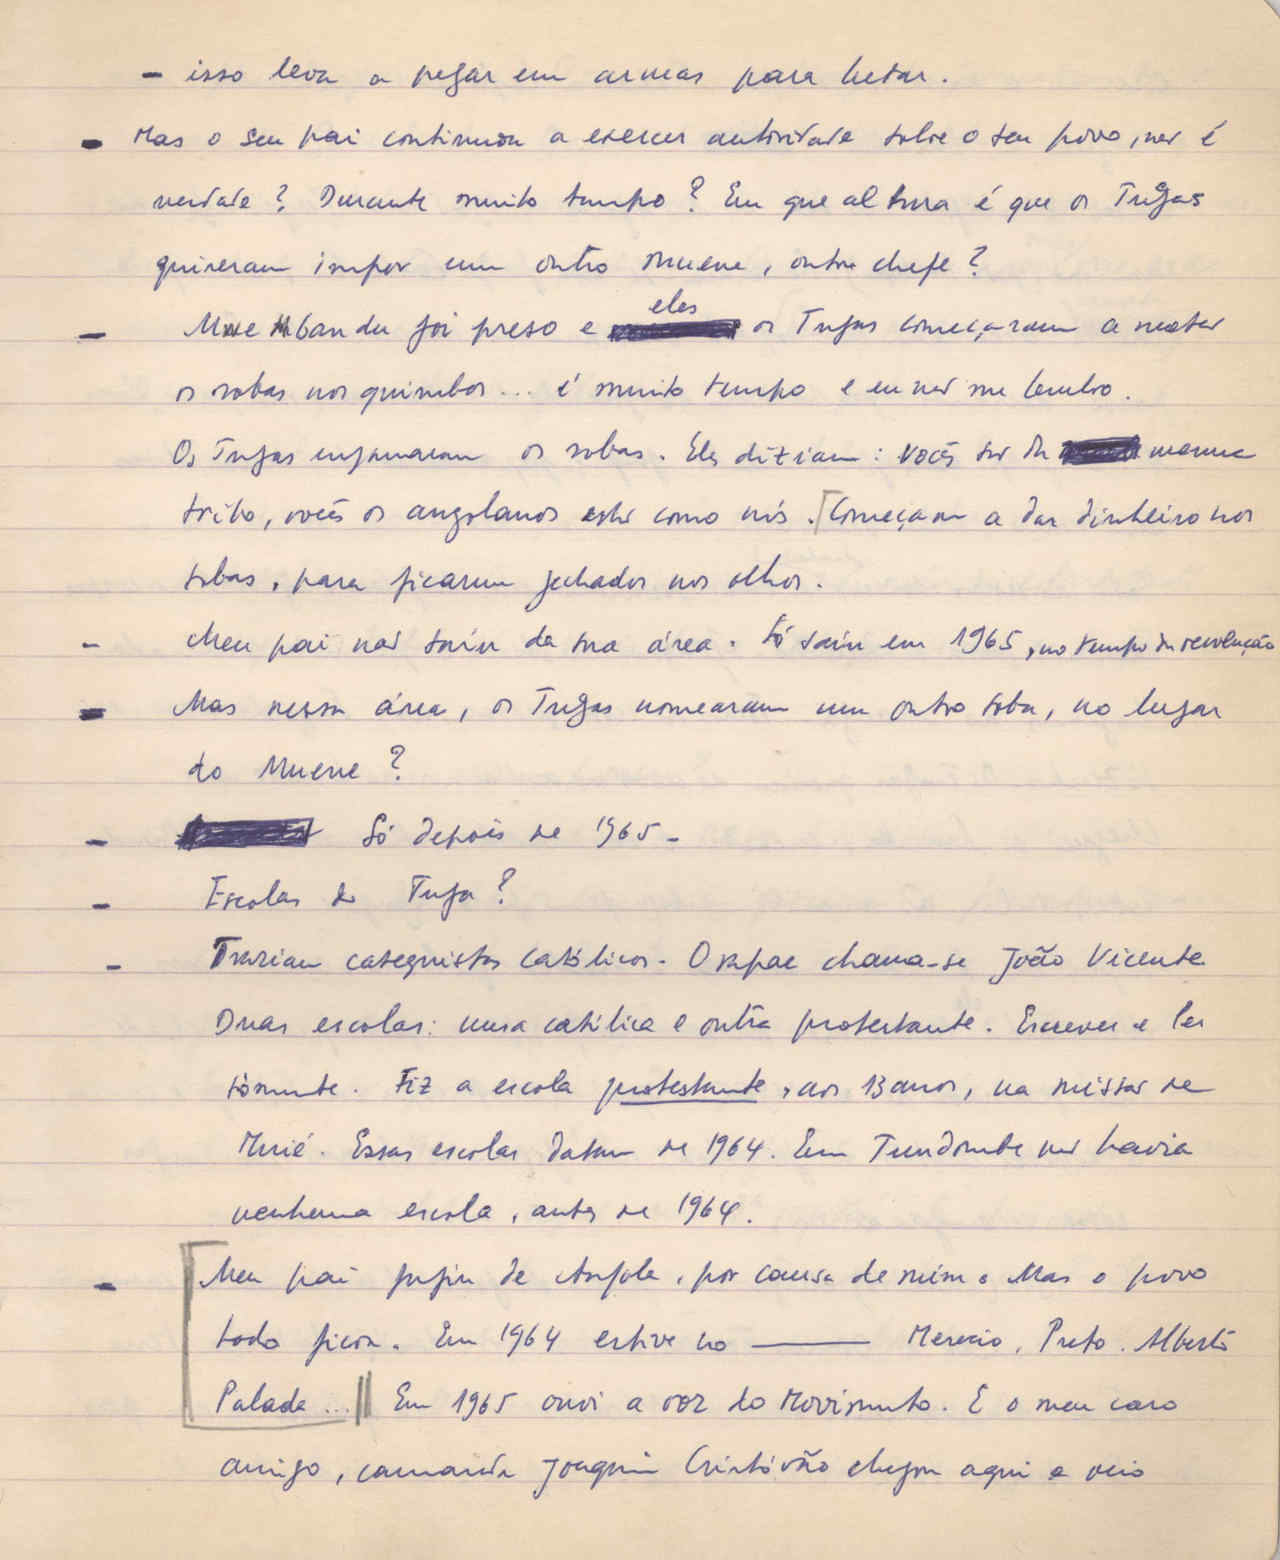 - isso leva a pegar em armas para lutar.
- Mas o seu pai continuou a exercer autoridade sobre o seu povo, não é
verdade? Durante muito tempo? Em que altura é que os Tugas
quiseram impor um outro muene, outro chefe?
- Mwe Mbandu foi preso e eles os Tugas começaram a matar
os sobas nos quimbos... é muito tempo e eu não me lembro.
Os Tugas enganaram os sobas. Eles diziam: vocês são da mesma
tribo, vocês os angolanos estão como nós. [Começaram a dar dinheiro nos
sobas, para ficarem fechados nos olhos.
- Meu pai não saíu da sua área. Só saíu em 1965, no tempo da revolução
- Mas nessa área, os Tugas nomearam um outro soba, no lugar
do Muene?
- Só depois de 1965-
- Escolas do Tuga?
- Traziam catequistas católicos. O chama-se João Vicente
Duas escolas: uma católica e outra protestante. Escrever e ler
sòmente. Fiz a escola protestante, aos 13 anos, na missão de
Muié. Essas escolas datam de 1964. Em não havia
nenhuma escola, antes de 1964.
- [Meu pai fugiu de Angola, por causa de mim. Mas o povo
todo ficou. Em 1964 estive no ——— Preto. Alberto
Palada...] Em 1965 ouvi a voz do Movimento. E o meu caro
amigo, camarada Joaquim Cristóvão chegou aqui e veio